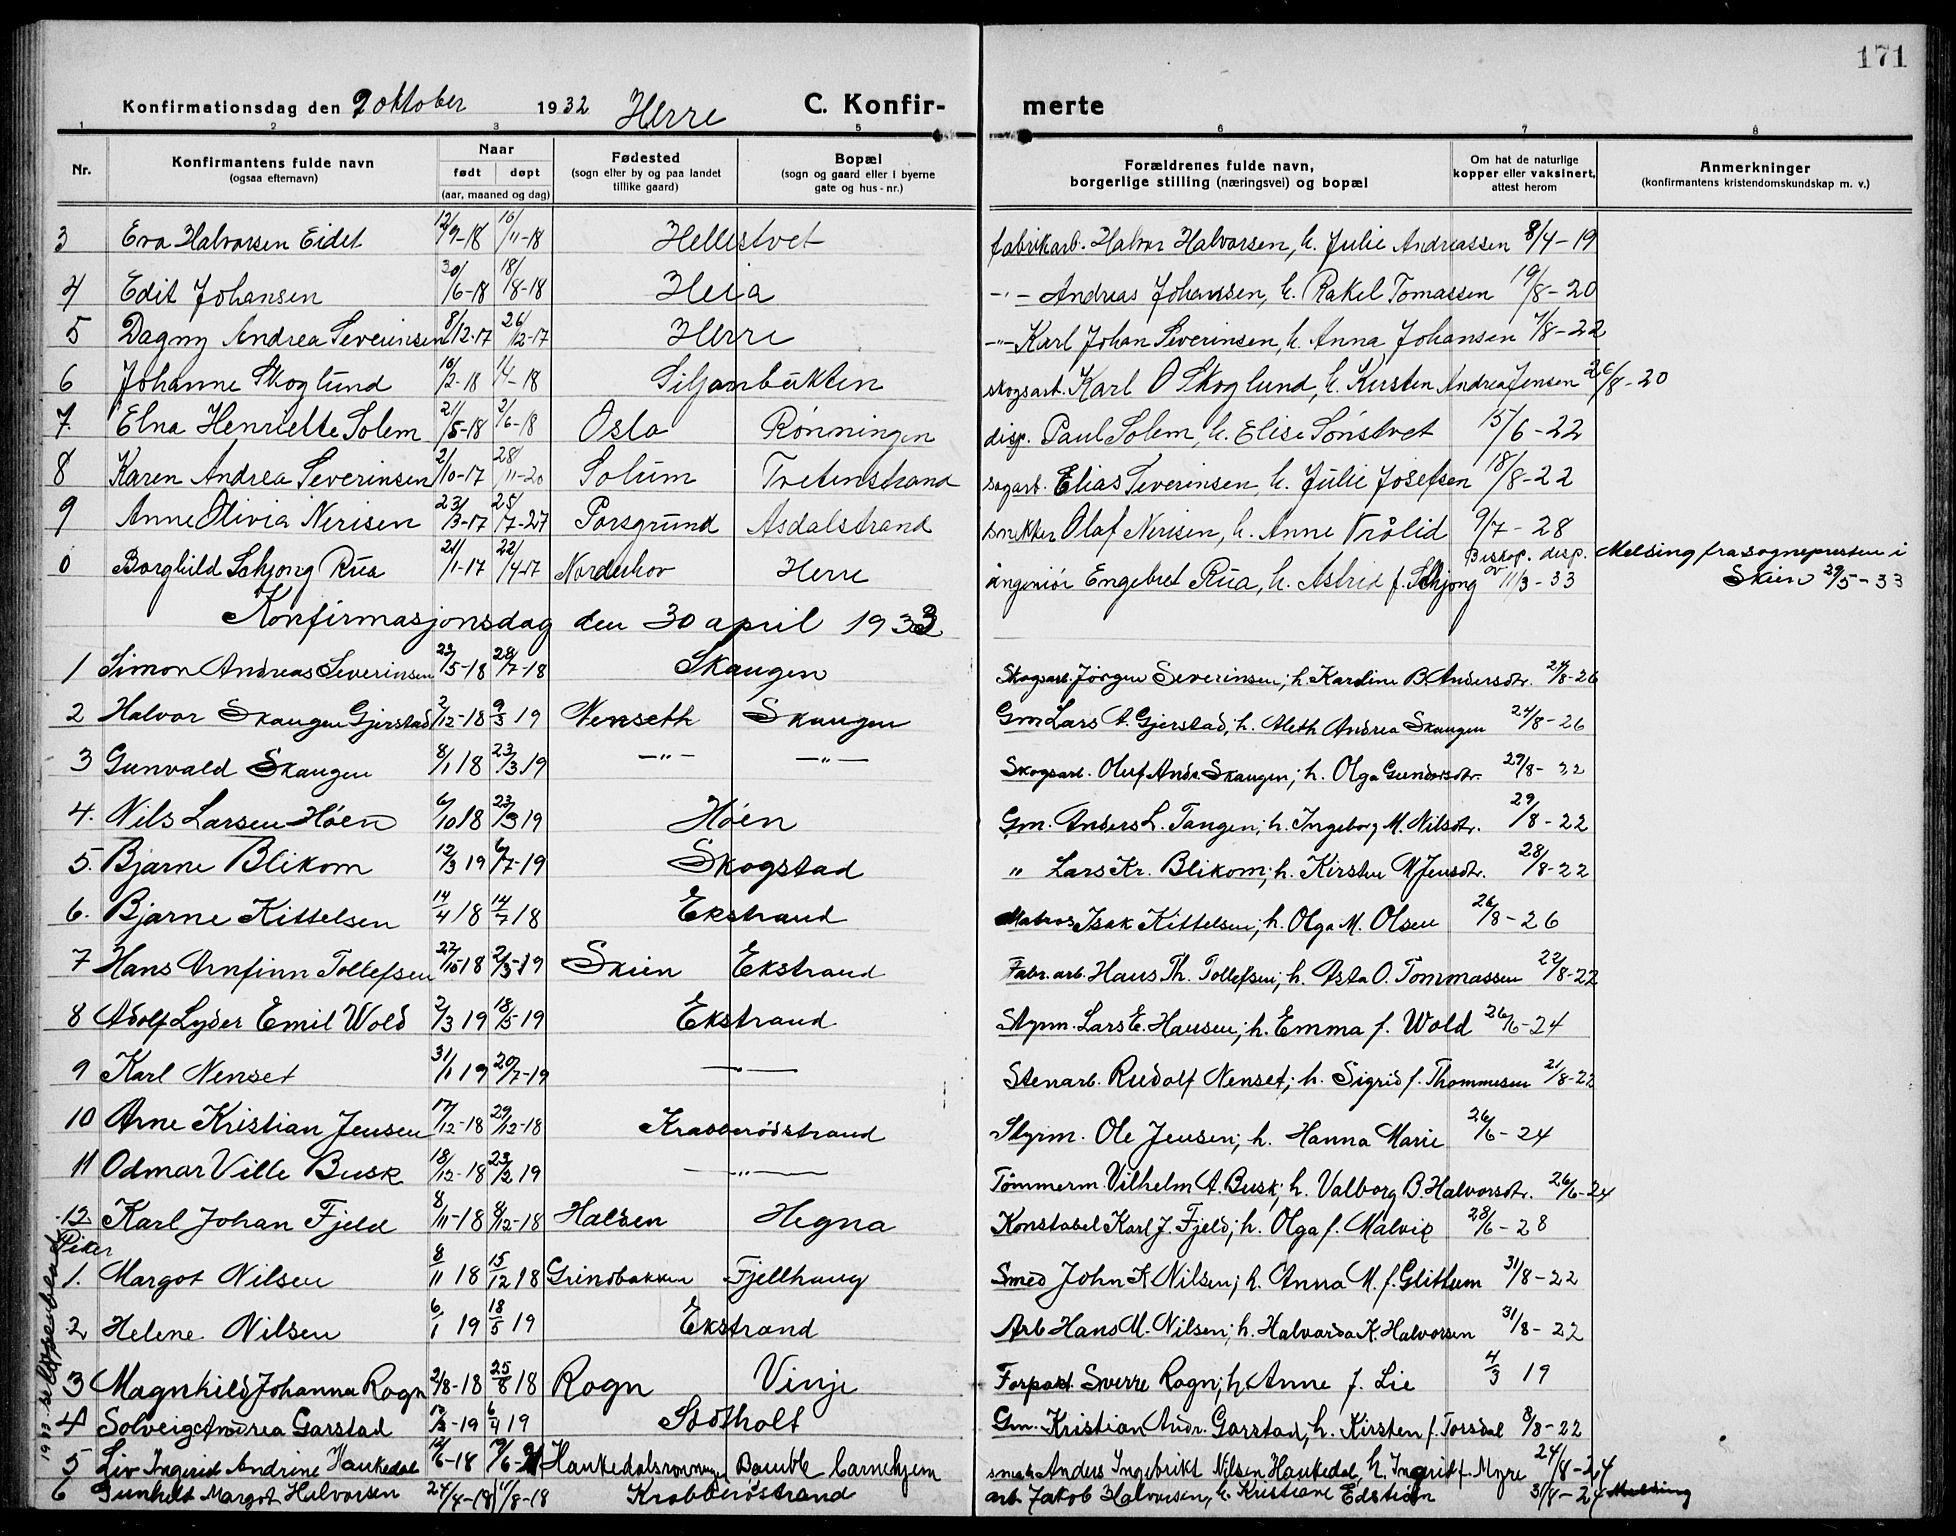 171
Konfirmationsdag den 2 oktober 1932 Herre C. Konfirmerte
1 2 3 5 6 7 8
Nr. Konfirmantens fulde navn (ogsaa efternavn) Naar født døpt (aar, maaned og dag) Fødested (sogn eller by og paa landet tillike gaard) Bopæl (sogn og gaard eller i byerne gate og hus-nr.) Forældrenes fulde navn, borgerlige stilling (næringsvei) og bopæl Om hat de naturlige kopper eller vaksinert, attest herom Anmerkninger (konfirmantens kristendomskundskap m. v.)
3 Eva Halvorsen Eidet 12/9-18 10/11-18 Hellestvet fabrikarb. Halvor Halvorsen, h. Julie Andreassen 8/4-19
4 Edit Johansen 30/6-18 18/8-18 Heia -"- Andreas Johansen, h. Rakel Tomassen 19/8-20
5 Dagny Andrea Severinsen 8/12-17 26/12-17 Herre -"- Karl Johan Severinsen, h. Anna Johansen 7/8-22
6 Johanne Skoglund 10/2-18 1/4-18 Siljanbukten skogsarb. Karl O Skoglund, h. Kirsten Andrea Jensen 26/8-20
7. Elna Henriette Solem 21/5-18 2/6-18 Oslo Rønningen disp. Paul Solem, h. Elise Sønstvet 15/6-22
8 Karen Andrea Severinsen 2/10-17 28/11-20 Solum Tretenstrand sagarb. Elias Severinsen, h. Julie Josefsen 18/8-22
9 Anne Olivia Nerisen 23/3-17 25/7-27 Porsgrund Asdalstrand snekker Olaf Nerisen, h. Anne Trålid 9/7-28
0 Borghild Schjong Rua 21/1-17 22/4-17 Norderhov Herre ingeniør Engebret Rua, h. Astrid f. Schjong Biskop. disp. av 11/3-33 Melding fra sognepresten i Skien 29/5-33
Konfirmasjonsdag den 30 april 1933
1 Simon Andreas Severinsen 23/5-18 28/7-18 Skaugen Skogsarb. Jörgen Severinsen; h. Kardine B. Andersdtr. 24/8-26
2 Halvor Skaugen Gjerstad 2/12-18 9/3 19 Nenseth Skaugen Gm Lars A. Gjerstad; h. Aleth Andrea Skaugen 24/8-26
3 Gunvald Skaugen 8/1 18 23/3 19 -"- -"- Skogsarb. Oluf Andr. Skaugen; h. Olga Gundersdtr. 29/8-22
4. Nils Larsen Höen 6/10 18 23/3 19 Höen Gm. Anders L. Tangen; h. Ingeborg M. Nilsdtr. 29/8-22
5. Bjarne Blikom 12/3 19 6/7-19 Skogstad " Lars Kr. Blikom; h. Kirsten M Jensdtr. 28/8-22
6. Bjarne Kittelsen 14/4 18 14/7 18 Ekstrand Matros Isak Kittelsen; h. Olga M. Olsen 26/8-26
7 Hans Arnfinn Tollefsen 27/10 18 2/3-19 Skien Ekstrand Fabr. arb. Hans Th. Tollefsen; h. Asta O. Tommassen 22/8-22
8 Adolf Lyder Emil Wold 2/3 19 18/5-19 Ekstrand Styrm. Lars E. Hansen; h. Emma f. Wold 26/6-24
9 Karl Nenset 31/1 19 20/7-19 -"- Stenarb. Rudolf Nenset; h. Sigrid f. Thommesen 21/8-22
10 Arne Kristian Jensen 17/12-18 29/12-18 Krabberödstrand Styrm. Ole Jensen; h. Hanna Marie 26/6-24
11 Odmar Ville Busk 18/12-18 23/2 19 -"- Tömmerm. Vilhelm A. Busk; h. Valborg B. Halvorsdtr. 26/6-24
12 Karl Johan Fjeld 8/11-18 8/12-18 Halden Hegna Konstabel Karl J. Fjeld; h. Olga f. Malvik 28/6-28
Piker
1. Margot Nilsen 8/11 18 15/12 18 Grindbakken Fjellhaug Smed John K Nilsen; h. Anna M. f. Glittum 31/8-22
2 Helene Nilsen 6/1 19 18/5 19 Ekstrand Arb Hans M. Nilsen; h. Halvarda K. Halvorsen 31/8-22
3 Magnhild Johanna Rogn 2/8-18 25/8 18 Rogn Vinje Forpakt. Sverre Rogn; h. Anne f. Lie 4/3 19
4 Solveig Andrea Garstad 6/4 19 Stokholt Gm. Kristian Andr. Garstad, h. Kirsten f. Torsdal 8/8-22
5 Liv Ingerid Andrine Haukedal 12/6-18 Haukedalsrønningen Bamble barnehjem Anders Ingebrikt Nilsen Haukedal, h. Ingerid f. Myre 24/8-24
6 Gunhild Margot Halvorsen 24/4-18 11/8-18 Krabberødstrand arb. Jakob Halvorsen, h. Kristiane 31/8-24 Melding